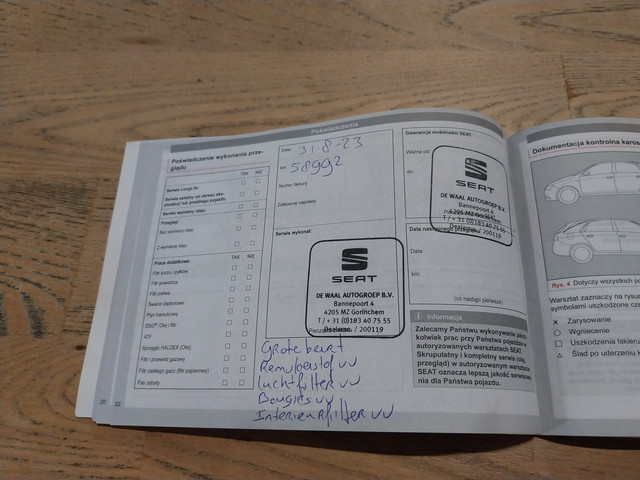 Poświadczenia
Poświadczenie wykonania prze-
glądu
TAK NIE
Serwis LongLife:
Serwis zależny od okresu eks-
ploatacji lub przebiegu pojazdu:
Serwis wymiany oleju:
Przegląd
Bez wymiany oleju
Z wymianą oleju
Prace dodatkowe: TAK NIE
Filtr kurzu i pyłków
Filtr powietrza
Filtr paliwa
Świece zapłonowe
Płyn hamulcowy
DSG® Olej i filtr
ATF
Sprzęgło HALDEX (Olej)
Filtr i przewód gazowy
Filtr ciekłego gazu (filtr papierowy)
Pas zębaty
Data: 31-8-23
km: 58992
Numer faktury
Zlecenie naprawy
Serwis wykonał:
SEAT
DE WAAL AUTOGROEP B.V.
Bannepoort 4
4205 MZ Gorlichem
T / + 31 (0)183 40 75 55
Dealernr. / 200119
Grote beurt
Remvloeistof vv
Luchtfilter vv
Bougies vv
Interieurfilter vv
Gwarancja mobilności SEAT:
Ważna od:
do:
SEAT
DE WAAL AUTOGROEP B.V.
Bannepoort 4
4205 MZ Gorlichem
T / + 31 (0)183 40 75 55
Dealernr. / 200119
Data następnego przeglądu
Data:
km:
(co nastąpi pierwsze)
Informacja
Zalecamy Państwu wykonywanie jakich-
kolwiek prac przy Państwa pojeździe w
autoryzowanych warsztatach SEAT.
Skrupulatny i kompletny serwis (olej,
przegląd) w autoryzowanym warsztacie
SEAT oznacza lepszą jakość serwisowa-
nia dla Państwa pojazdu.
Dokumentacja kontrolna karos
Rys. 4 Dotyczy wszystkich po
Warsztat zaznaczy na rysu
× Zarysowanie
○ Wgniecenie
□ Uszkodzenia lakieru
△ Ślad po uderzeniu k